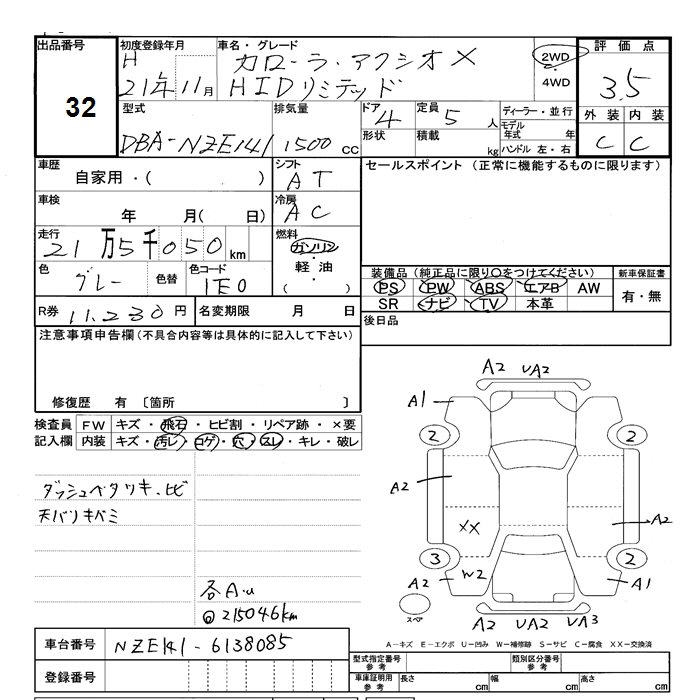 出品番号
32
初度登録年月
H
21年11月
車名・グレード
カローラ・アクシオ X
HIDリミテッド
2WD
4WD
評価点
3.5
外装 内装
C C
型式
DBA-NZE141
排気量
1500 cc
ドア 4
定員 5 人
形状
積載 kg
ディーラー・並行
モデル年式 年
ハンドル 左・右
車歴
自家用・( )
シフト
AT
セールスポイント (正常に機能するものに限ります)
車検
年 月( 日)
冷房
AC
走行
21万5千050km
燃料
ガソリン
・
軽油
・
( )
色
グレー
色替
色コード
1E0
装備品(純正品に限り○をつけてください)
新車保証書
PS PW ABS エアB AW
SR ナビ TV 本革
有・無
R券 11,230 円
名変期限 月 日
後日品
注意事項申告欄(不具合内容等は具体的に記入して下さい)
修復歴 有 〔箇所 〕
検査員記入欄
FW キズ・飛石・ヒビ割・リペア跡・×要
内装 キズ・汚レ・コゲ・穴・スレ・キレ・破レ
ダッシュベタツキ.ヒビ
天バリキバミ
各A.u
@215046km
A2 UA2
A1
2 2
A2
XX
A2
3 2
A2 W2
A1
スペア
A2 UA2 UA3
A-キズ E-エクボ U-凹み W-補修跡 S-サビ C-腐食 XX-交換済
車台番号 NZE141-6138085
登録番号
型式指定番号 参考
類別区分番号 参考
車庫証明用 参考
長さ cm
幅 cm
高さ cm